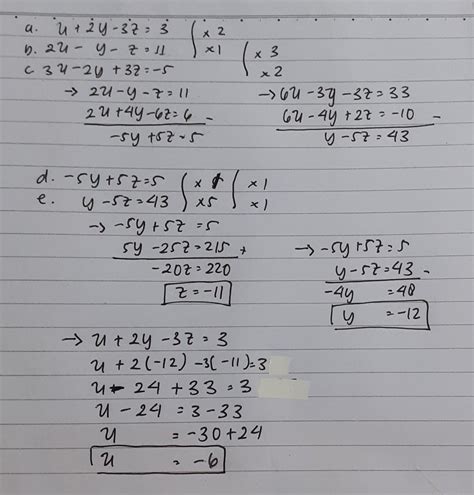 a. u + 2y - 3z = 3 | x 2
b. 2u - y - z = 11 | x 1 | x 3
c 3u - 2y + 3z = -5 | x 2
→ 2u - y - z = 11
2u + 4y - 6z = 6 -
-5y + 5z = 5
→ 6u - 3y - 3z = 33
6u - 4y + 2z = -10 -
y - 5z = 43
d. -5y + 5z = 5 | x 1 | x 1
e. y - 5z = 43 | x 5 | x 1
→ -5y + 5z = 5
5y - 25z = 215 +
-20z = 220
z = -11
→ -5y + 5z = 5
y - 5z = 43 -
-4y = 48
y = -12
→ u + 2y - 3z = 3
u + 2(-12) - 3(-11) = 3
u - 24 + 33 = 3
u - 24 = 3 - 33
u = -30 + 24
u = -6